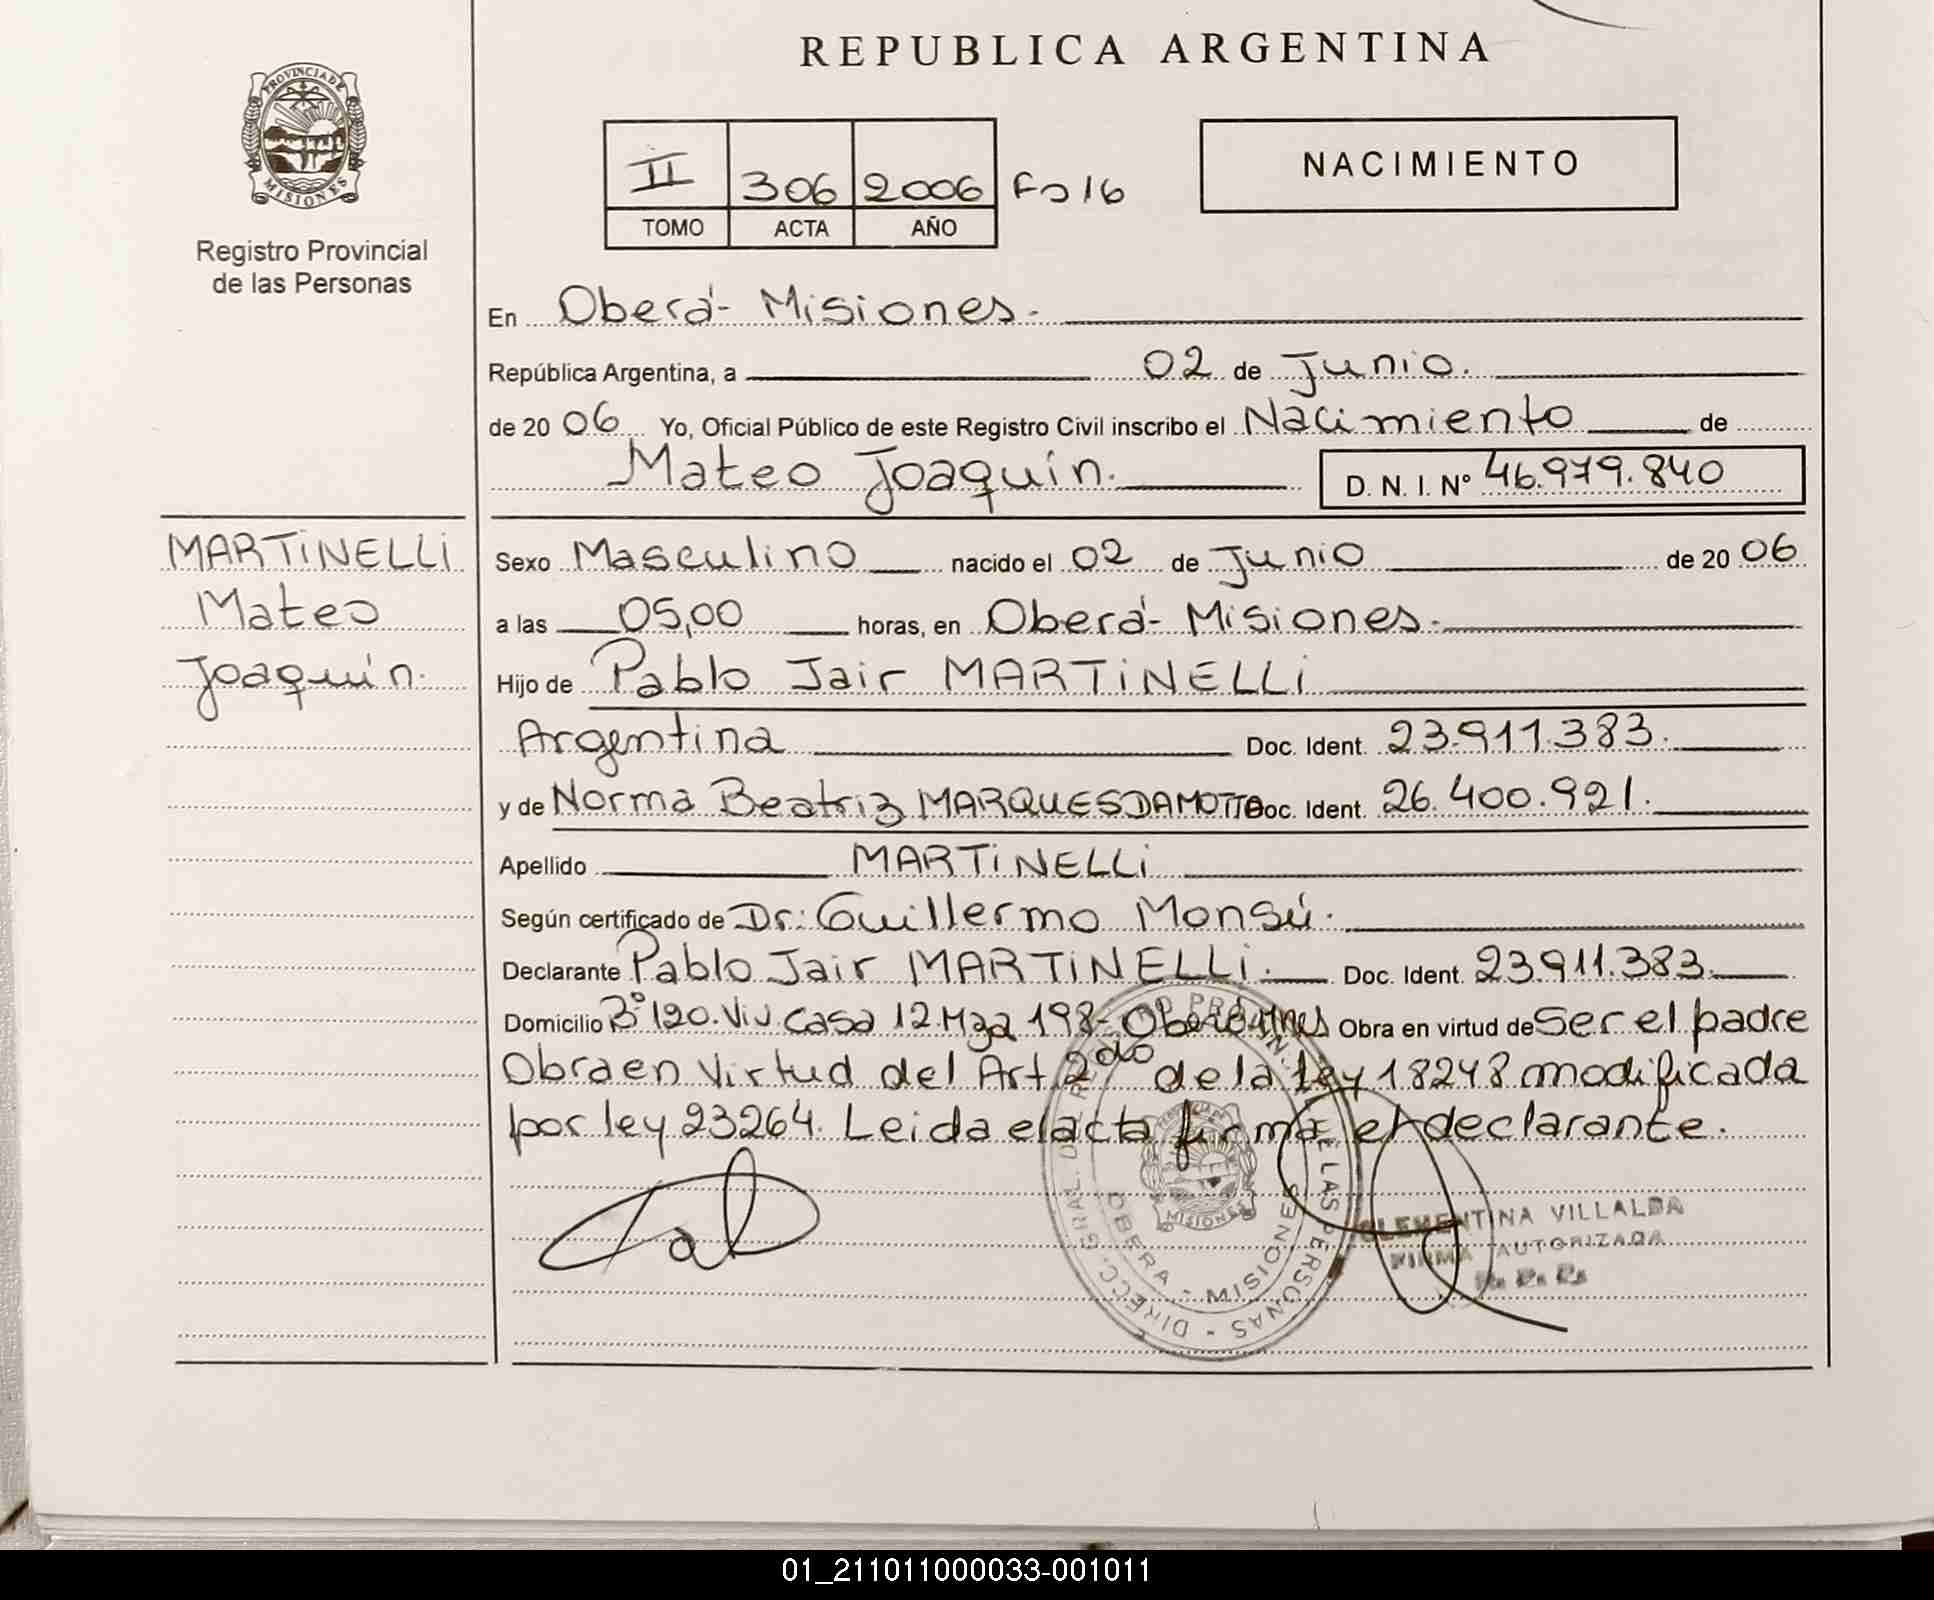 REPUBLICA ARGENTINA
PROVINCIA DE
MISIONES
Registro Provincial
de las Personas
II 306 2006 Fo 16
TOMO ACTA AÑO
NACIMIENTO
En Oberá - Misiones.
República Argentina, a 02 de Junio.
de 20 06 Yo, Oficial Público de este Registro Civil inscribo el Nacimiento de
Mateo Joaquín. D. N. I. Nº 46.979.840
MARTINELLI
Mateo
Joaquín.
Sexo Masculino nacido el 02 de Junio de 20 06
a las 05,00 horas, en Oberá - Misiones.
Hijo de Pablo Jair MARTINELLI
Argentina Doc. Ident. 23.911.383.
y de Norma Beatriz MARQUES DA MOTTA Doc. Ident. 26.400.921.
Apellido MARTINELLI
Según certificado de Dr: Guillermo Monsú.
Declarante Pablo Jair MARTINELLI. Doc. Ident. 23.911.383.
Domicilio Bº 120. Viv Casa 12 Mza 198 - Oberá Mnes Obra en virtud de Ser el padre
Obra en Virtud del Art. 2do de la Ley 18248 modificada
por ley 23264. Leida el acta firma el declarante.
DIRECC. GRAL. DEL REGISTRO PROVINCIAL DE LAS PERSONAS
OBERA - MISIONES
MISIONES
CLEMENTINA VILLALBA
FIRMA AUTORIZADA
01_211011000033-001011